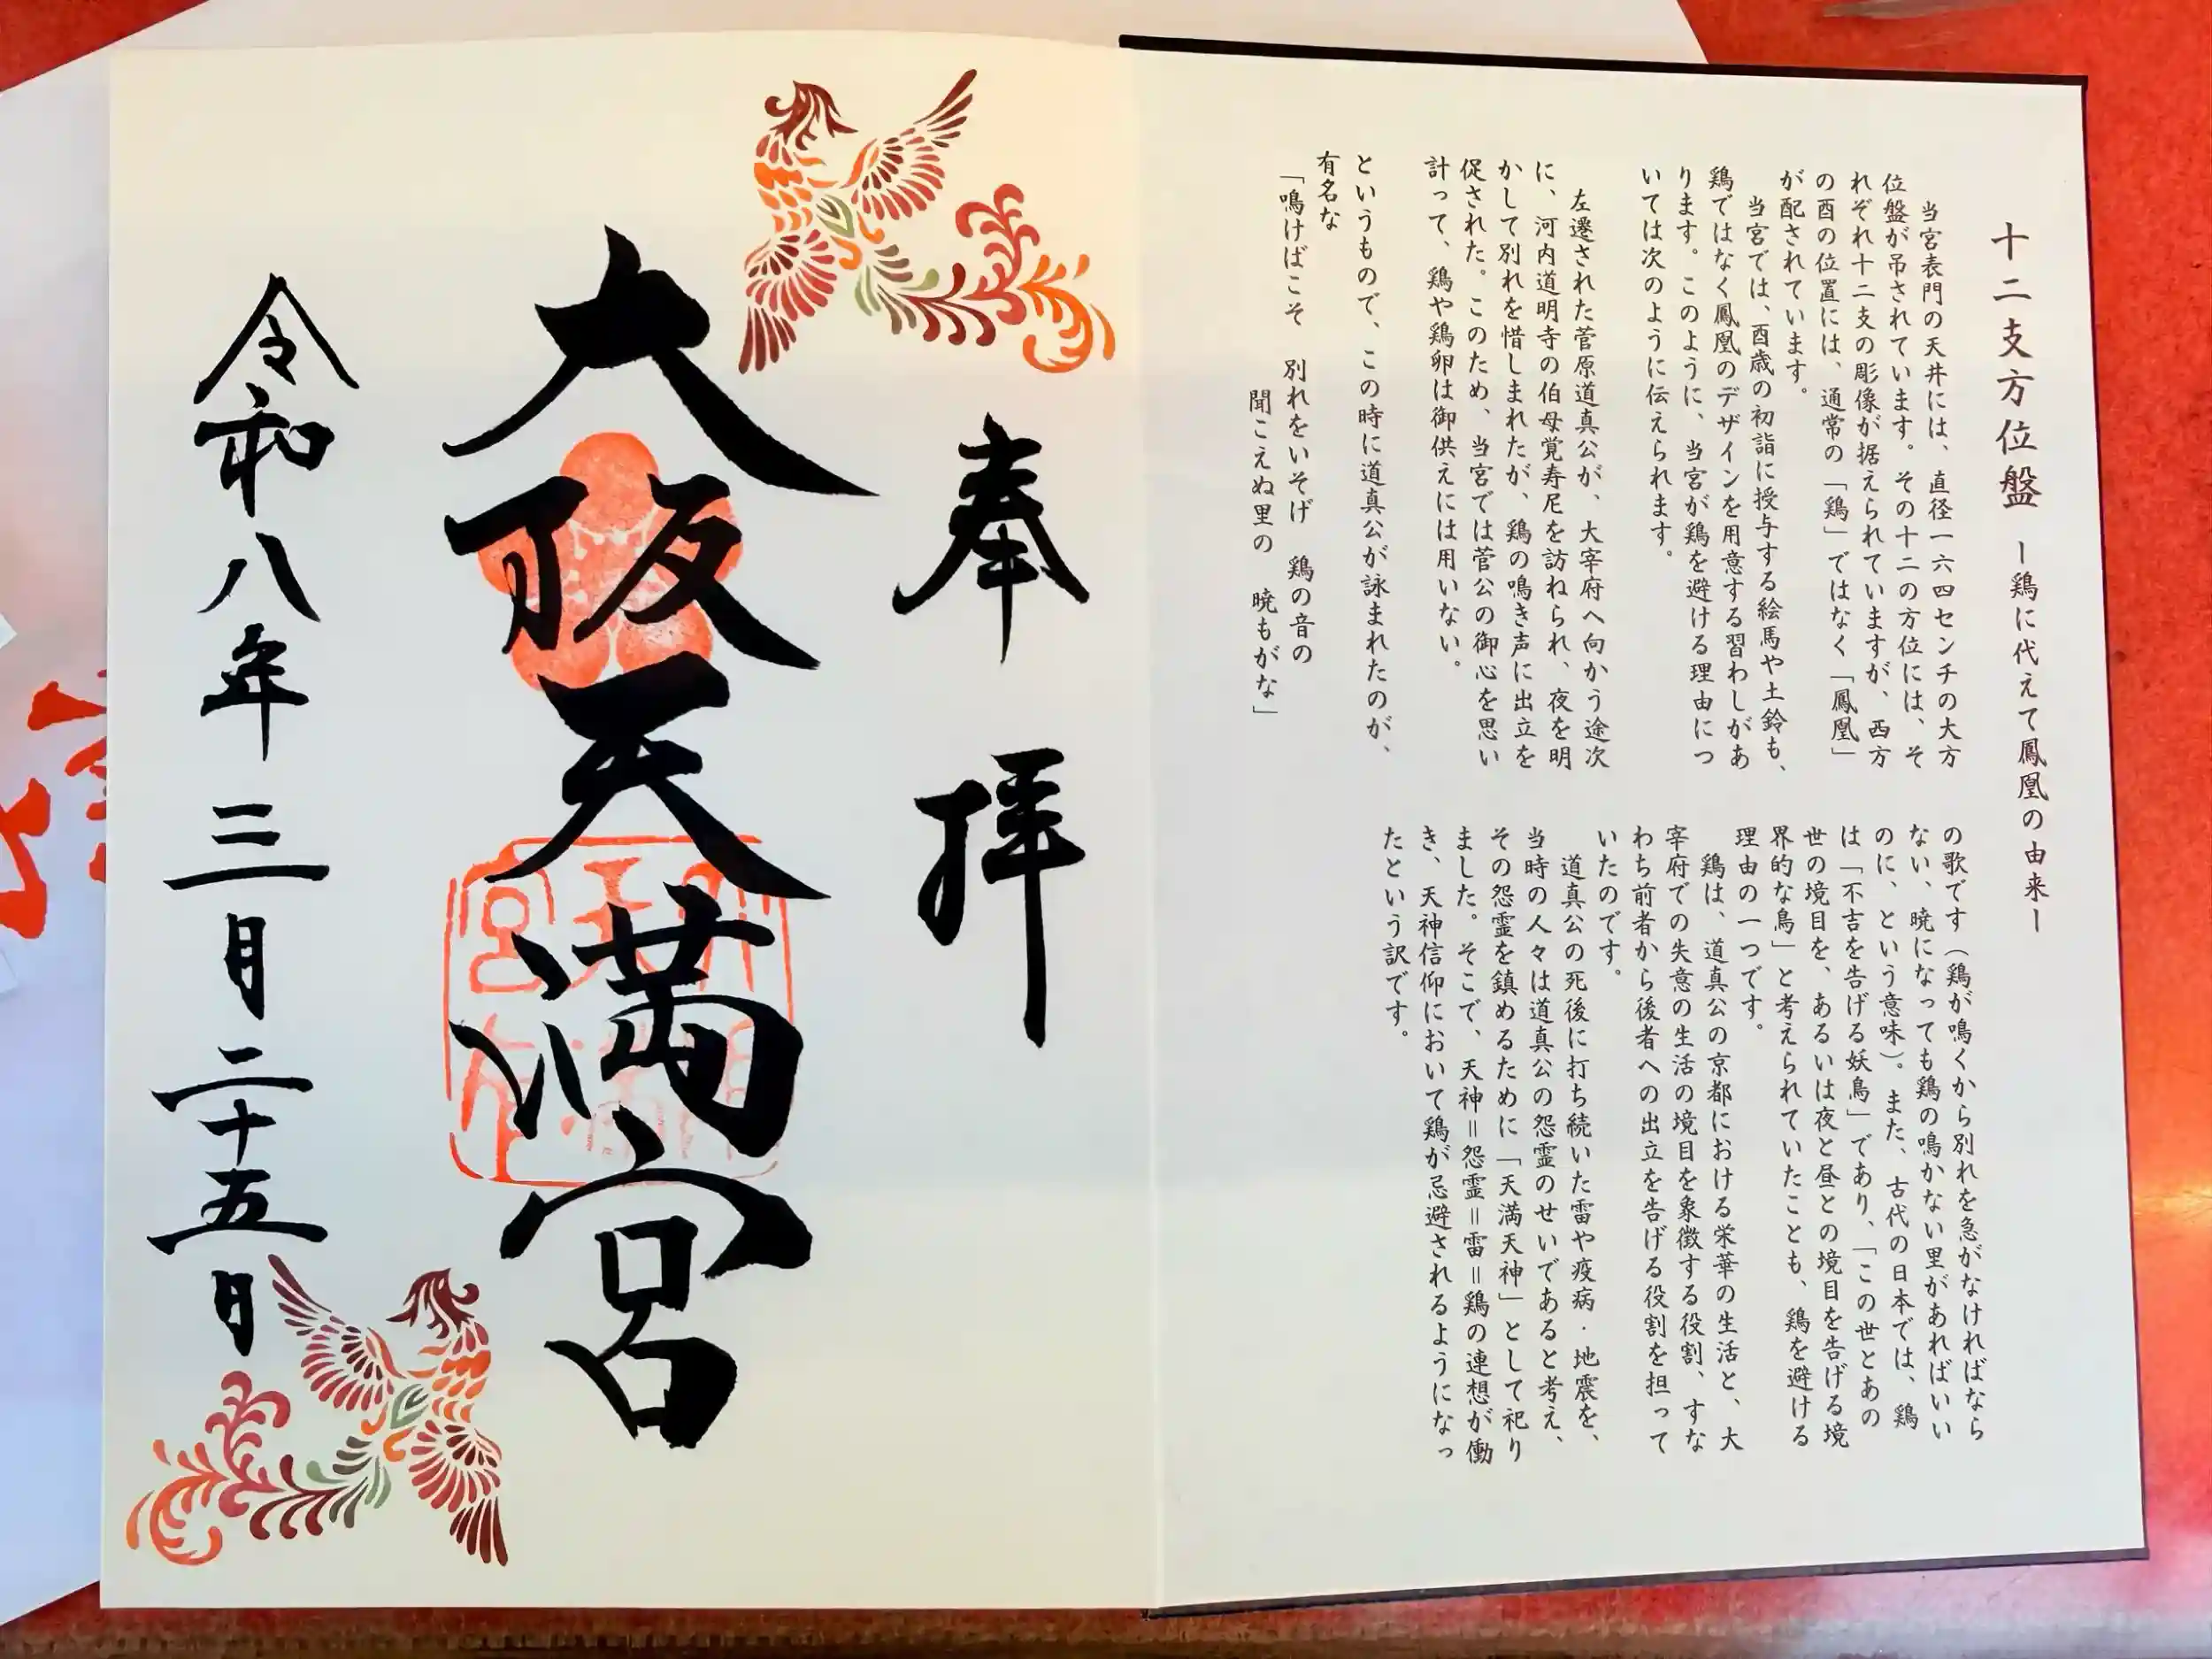 十二支方位盤 ー鶏に代えて鳳凰の由来ー
当宮表門の天井には、直径一六四センチの大方
位盤が吊されています。その十二の方位には、そ
れぞれ十二支の彫像が据えられていますが、西方
の酉の位置には、通常の「鶏」ではなく「鳳凰」
が配されています。
当宮では、酉歳の初詣に授与する絵馬や土鈴も、
鶏ではなく鳳凰のデザインを用意する習わしがあ
ります。このように、当宮が鶏を避ける理由につ
いては次のように伝えられます。
左遷された菅原道真公が、大宰府へ向かう途次
に、河内道明寺の伯母覚寿尼を訪ねられ、夜を明
かして別れを惜しまれたが、鶏の鳴き声に出立を
促された。このため、当宮では菅公の御心を思い
計って、鶏や鶏卵は御供えには用いない。
というもので、この時に道真公が詠まれたのが、
有名な
「鳴けばこそ 別れをいそげ 鶏の音の
聞こえぬ里の 暁もがな」
の歌です（鶏が鳴くから別れを急がなければなら
ない、暁になっても鶏の鳴かない里があればいい
のに、という意味）。また、古代の日本では、鶏
は「不吉を告げる妖鳥」であり、「この世とあの
世の境目を、あるいは夜と昼との境目を告げる境
界的な鳥」と考えられていたことも、鶏を避ける
理由の一つです。
鶏は、道真公の京都における栄華の生活と、大
宰府での失意の生活の境目を象徴する役割、すな
わち前者から後者への出立を告げる役割を担って
いたのです。
道真公の死後に打ち続いた雷や疫病・地震を、
当時の人々は道真公の怨霊のせいであると考え、
その怨霊を鎮めるために「天満天神」として祀り
ました。そこで、天神＝怨霊＝雷＝鶏の連想が働
き、天神信仰において鶏が忌避されるようになっ
たという訳です。
奉拝
大阪天満宮
令和八年三月二十五日